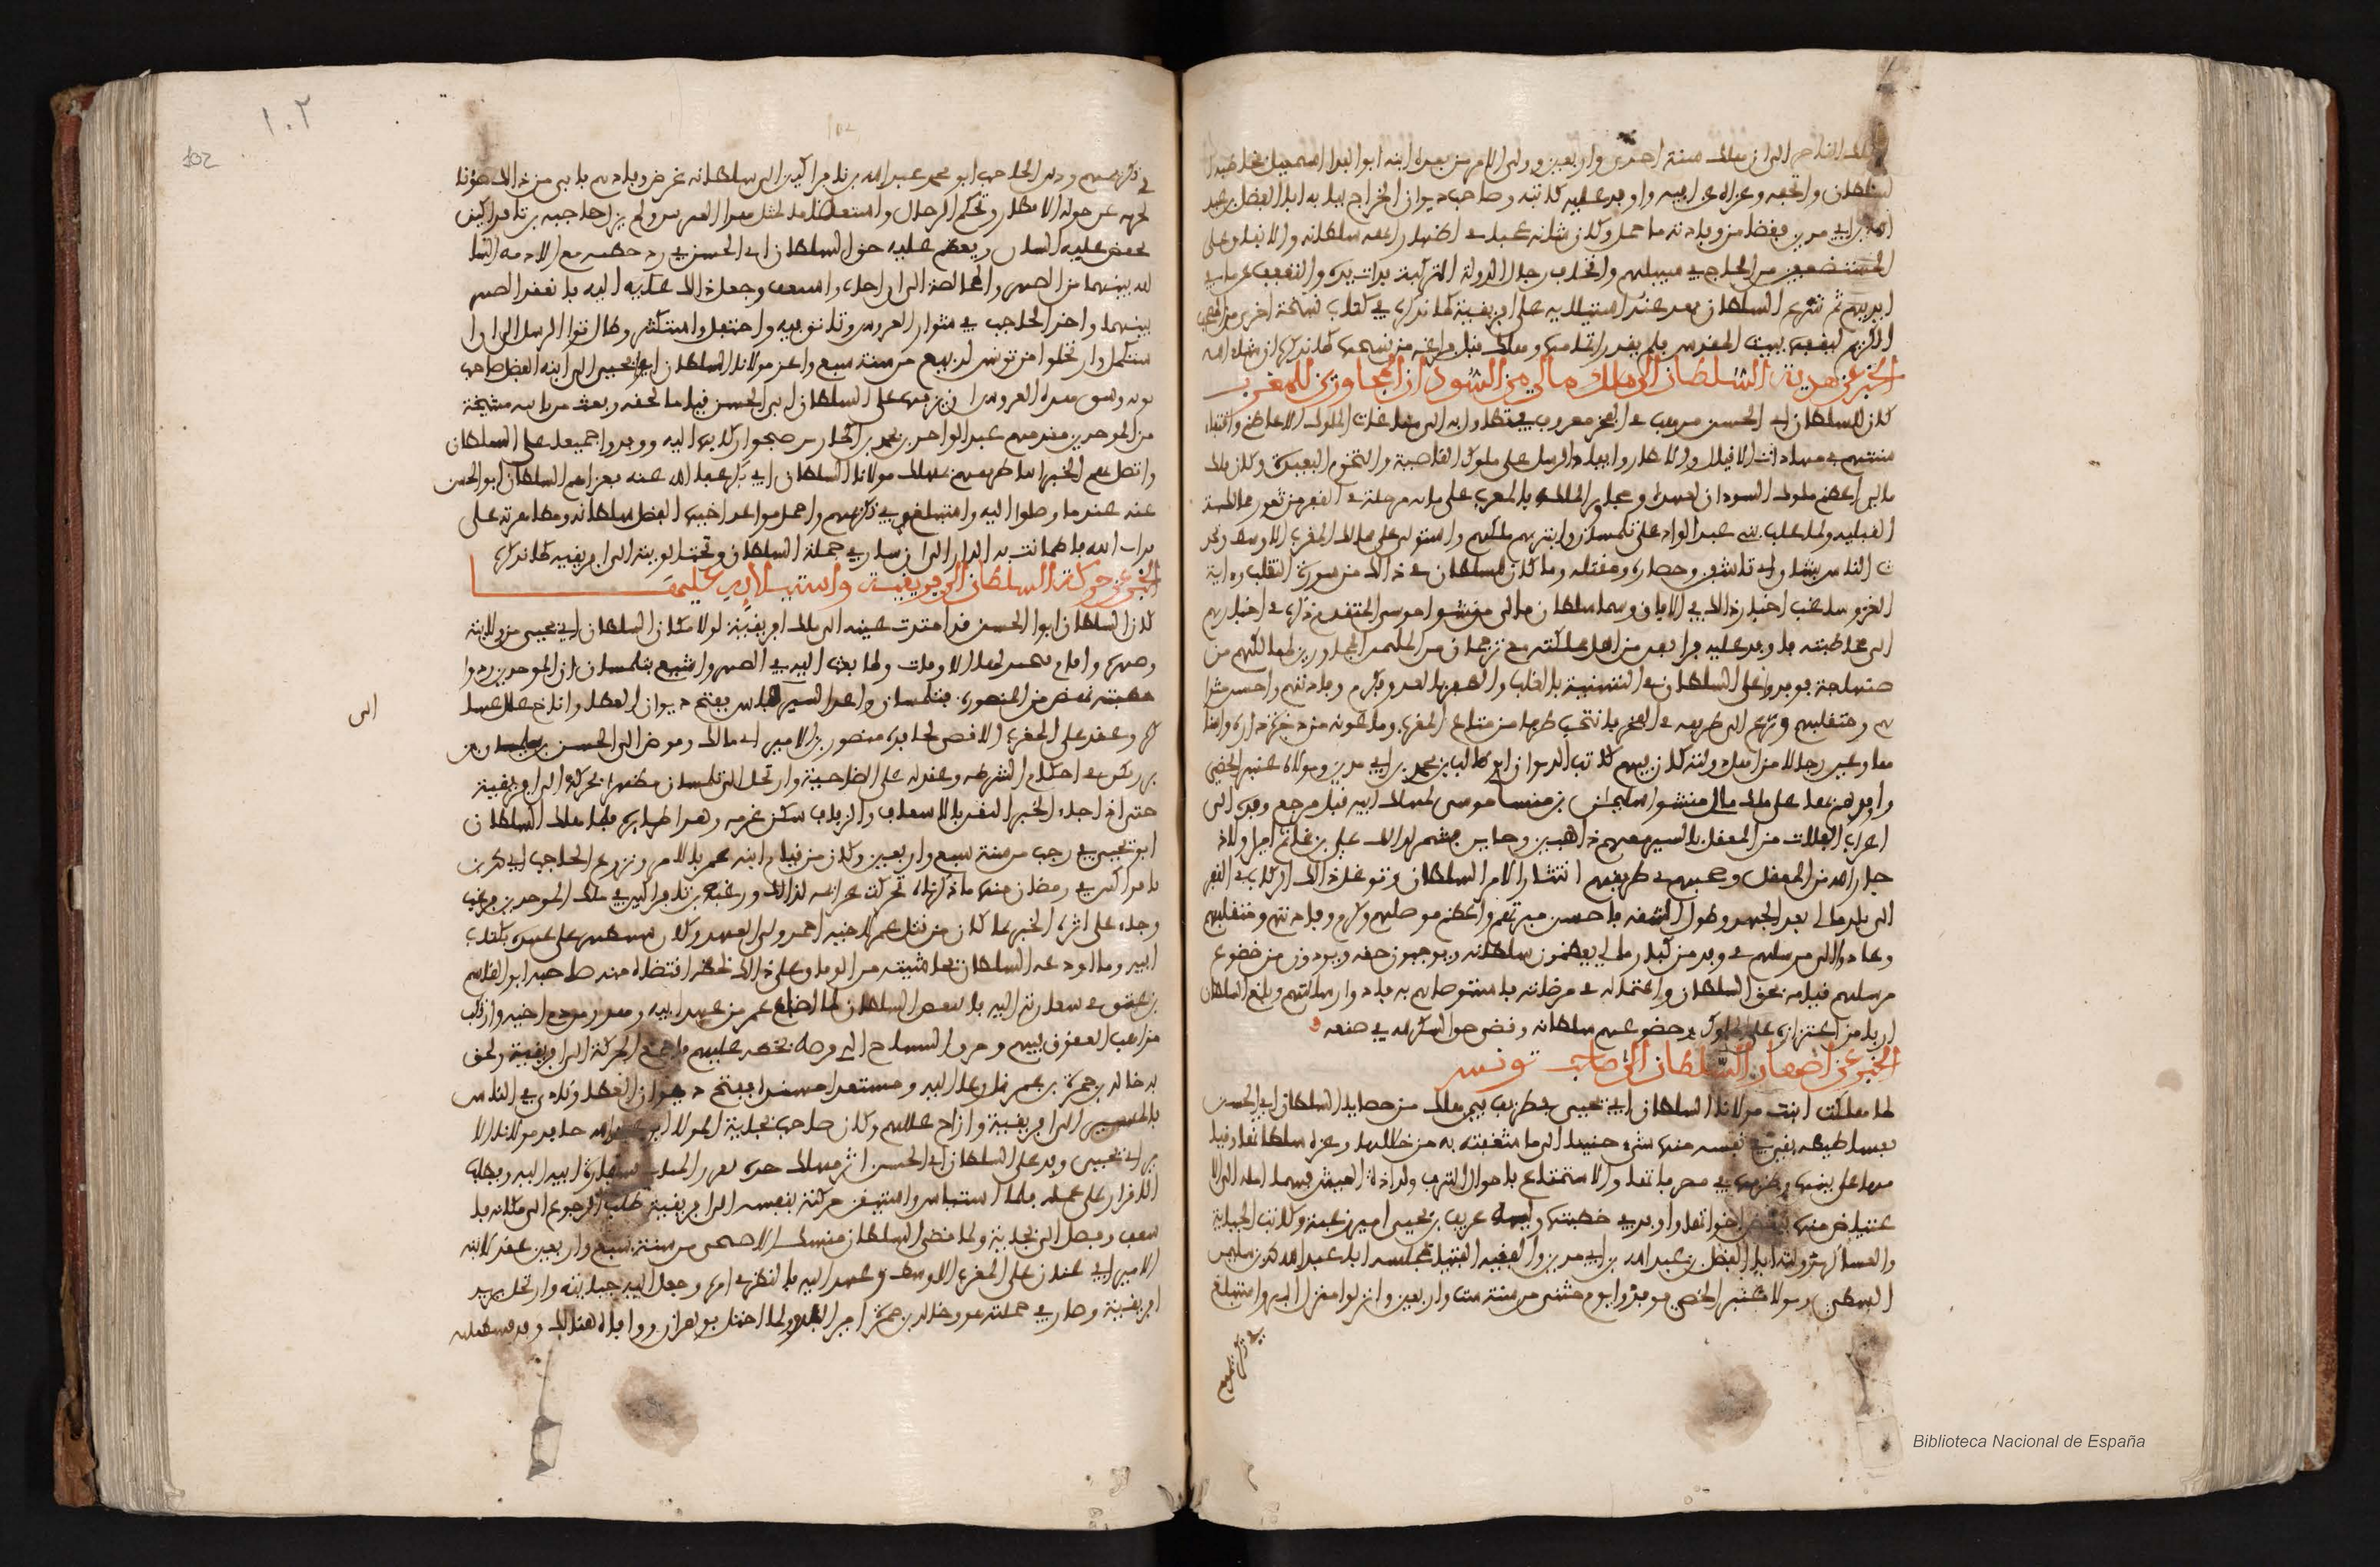 الملك الناصر الى ان هلك سنة احدى واربعين وولى الامر من بعده ابنه ابو الفدا اسمعيل فخاطبه
السلطان واتحفه وعزاه عن ابيه واوفد عليه كاتبه وصاحب ديوان الخراج ببابه ابا الفضل بن عبد
الله بن ابي مدين فقضى من وفادته ما حمل وكان شانه عجبا في اظهار ابهة سلطانه والانفاق على
المستضعفين من الحاج في سبيلهم واتحاف رجال الدولة التركية بذات يده والتعفف عما في
ايديهم ثم شرع السلطان بعد عند استيلائه على افريقية كما نذكره في كتاب نسخة اخرى من المصحف
الكريم ليقفها ببيت المقدس فلم يقدر اتمامها وهلك قبل فراغه من نسخها كما نذكر ان شاء الله
الخبر عن هدية السلطان الى ملك مالي من السودان المجاورين للمغرب
كان للسلطان ابي الحسن مذهب في الفخر معروف يتطاول به الى مناغات الملوك الاعاظم واقتفاء
سننهم في مهادات الاقيال والانظار وايفاد الرسل على ملوك القاصية والتخوم البعيدة وكان ملك
مالي اعظم ملوك السودان لعهده ومجاور لملكه بالمغرب على مائة مرحلة في القفر من ثغور ممالكه
القبلية ولما غلب بني عبد الواد على تلمسان وابتزهم ملكهم واستولى على ممالك المغرب الاوسط وتحد
ث الناس بشان ابي تاشفين وحصاره ومقتله وما كان للسلطان في ذلك من سورة التغلب واهانة
العدو شاعت اخبار ذلك في الافاق وسما سلطان مالي منسا موسى المتقدم ذكره في اخبارهم
الى مخاطبته فاوفد عليه فرانقين من اهل مملكته مع ترجمان من الملثمين المجاورين لممالكهم من
صنهاجة فوفدوا على السلطان في التهنية بالتغلب والظفر بالعدو فاكرم وفادتهم واحسن مثوا
هم ومنقلبهم ونزع الى طريقه في الفخر فانتخب طرفا من متاع المغرب وماعونه من ذخيرة داره واسنا
ها وعين رجالا من اهل دولته كان فيهم كاتب الديوان ابو طالب بن محمد بن ابي مدين ومولاه عنبر الخصي
واوفدهم بها على ملك مالي منسا سليمان بن منسا موسى لمهلك ابيه قبل مرجع وفده الى
اعراب الفلات من المعقل بالسير معهم ذاهبين وجايين فشمر لذلك علي بن غانم امير اولاد
جار الله من المعقل وصحبهم في طريقهم امتثالا لامر السلطان وتوغل ذلك الركاب في القفر
الى بلد مالي بعد الجهد وطول الشقة فاحسن مبرتهم واعظم موصلهم وكرم وفادتهم ومنقلبهم
وعادوا الى مرسلهم في وفد من كبار مالي يعظمون سلطانه ويوجبون حقه ويودون من خضوع
مرسلهم وقيامه بحق السلطان واعتماله في مرضاته ما استوصاهم به فادوا رسالتهم وبلغ السلطان
اربه من اعتزازه على الملوك وخضوعهم لسلطانه وقضى حق الشكر لله في صنعه
الخبر عن اصهار السلطان الى صاحب تونس
لما هلكت ابنة مولانا السلطان ابي يحيى بطريف فيمن هلك من حظايا السلطان ابي الحسن
بفساطيطه بقي في نفسه منها شيء حنينا الى ما شغفته به من خلالها وعزة سلطانها وقيا
مها على بيتها وظرفها في تصرفاتها والاستمتاع باحوال الترف ولذاذة العيش فسما امله الى الا
عتياض منها ببعض اخواتها واوفد في خطبتها وليه عريف بن يحيى امير زغبة وكاتب الجباية
والعساكر بدولته ابا الفضل بن عبد الله بن ابي مدين والفقيه الفتيا بمجلسه ابا عبد الله محمد بن سليمن
السطي ومولاه عنبر الخصي فوفدوا يوم مثنى من سنة ست واربعين وانزلوا منزل البر واستبلغ
في تكريمهم
١٠٢
102
في تكريمهم ودس الحاجب ابو محمد عبد الله بن تافراكين الى سلطانه غرض وفادتهم فابى من ذلك صونا
لحرمه عن جولة الاقطار وتحكم الرجال واستعظاما لمثل هذا العرس ولم يزل حاجبه بن تافراكين
يخفض عليه الشان ويعظم عليه حق السلطان ابي الحسن في رد خطبته مع الاذمة السا
لفة بينهما من الصهر والمخالصة الى ان اجاب واسعف وجعل ذلك اليه فانعقد الصهر
بينهما واخذ الحاجب في شوار العروس وتانق فيه واحتفل واستكثر وطال ثواء الرسل الى ان ا
ستكمل وارتحلوا من تونس لربيع من سنة سبع واعز مولانا السلطان ابو يحيى الى ابنه الفضل صاحب
بونه وشقيق هذه العروس ان يزفها على السلطان ابي الحسن قياما بحقه وبعث من بابه مشيخة
من الموحدين مقدمهم عبد الواحد بن محمد بن اكمازير صحبوا ركابها اليه ووفدوا جميعا على السلطان
واتصل بهم الخبر اثنا طريقهم بمهلك مولانا السلطان ابي بكر عفا الله عنه فعزاهم السلطان ابو الحسن
عنه عندما وصلوا اليه واستبلغ في تكريمهم واجمل موعد اخيها الفضل بسلطانه ومظاهرته على
تراث ابيه فاطمانت به الدار الى ان سار في جملة السلطان وتحت الويته الى افريقية كما نذكره
الخبر عن حركة السلطان الى افريقية واستيلايه عليها
كان السلطان ابو الحسن قد امتدت عينه الى ملك افريقية لولا مكان السلطان ابي يحيى من ولايته
وصهره واقام يتحين لها الاوقات ولما بعث اليه في الصهر واشيع بتلمسان ان الموحدين ردوا
خطبته نهض من المنصورة بتلمسان واغذ السير الى فاس ففتح ديوان العطا وازاح علل عسا
الى
كره وعقد على المغرب الاقصى لحافده منصور بن الامير ابي مالك وفوض الى الحسن بن سليمان بن
يرزيكن في احكام الشرطة وعقد له على الضاحية وارتحل الى تلمسان مضمرا الحركة الى افريقية
حتى اذا جاء الخبر اليقين بالاسعاف والزفاف سكن غربه وهدا طايره فلما هلك السلطان
ابو يحيى في رجب من سنة سبع واربعين وكان من قيام ابنه عمر بالامر ونزوع الحاجب ابي محمد بن
تافراكين في رمضان منها ما ذكرناه تحركت عزايمه لذلك ورغبه بن تافراكين في ملك الموحدين فرغب
وجاء على اثره الخبر بما كان من قتل عمر لاخيه احمد ولي العهد وكان يستظهر على عهده بكتاب
ابيه وما اودعه السلطان بحاشيته من الوفا على ذلك بخطه اقتضاه منه حاجبه ابو القاسم
بن عتو في سفارته اليه فامتعض السلطان لما اضاع عمر من عهد ابيه وهدر من دم اخيه وارتكب
مذاهب العقوق فيهم وخرق السياج الذي فرضه بخطه عليهم فاجمع الحركة الى افريقية ولحق
به خالد بن حمزة بن عمر نازعا اليه ومستعديا مستنفرا ففتح ديوان العطا ونادى في الناس
بالمسير الى افريقية وازاح عللهم وكان صاحب بجاية المولى ابو عبد الله حافد مولانا الا
مير ابي يحيى وفد على السلطان ابي الحسن اثر مهلك جده بسفارة ابيه اليه ويطلب
الاقرار على عمله فلما استياس واستيقن حركته بنفسه الى افريقية طلب الرجوع الى مكانه فا
سعف وفصل الى بجاية ولما قضى السلطان منسك الاضحى من سنة سبع واربعين عقد لابنه
الامير ابي عنان على المغرب الاوسط وعهد اليه بالنظر في اموره وجعل اليه جبايته وارتحل يريد
افريقية وصار في جملته هو وخالد بن حمزة امير البدو ولما احتل بوهران ووافاه هنالك وفد قسنطينه